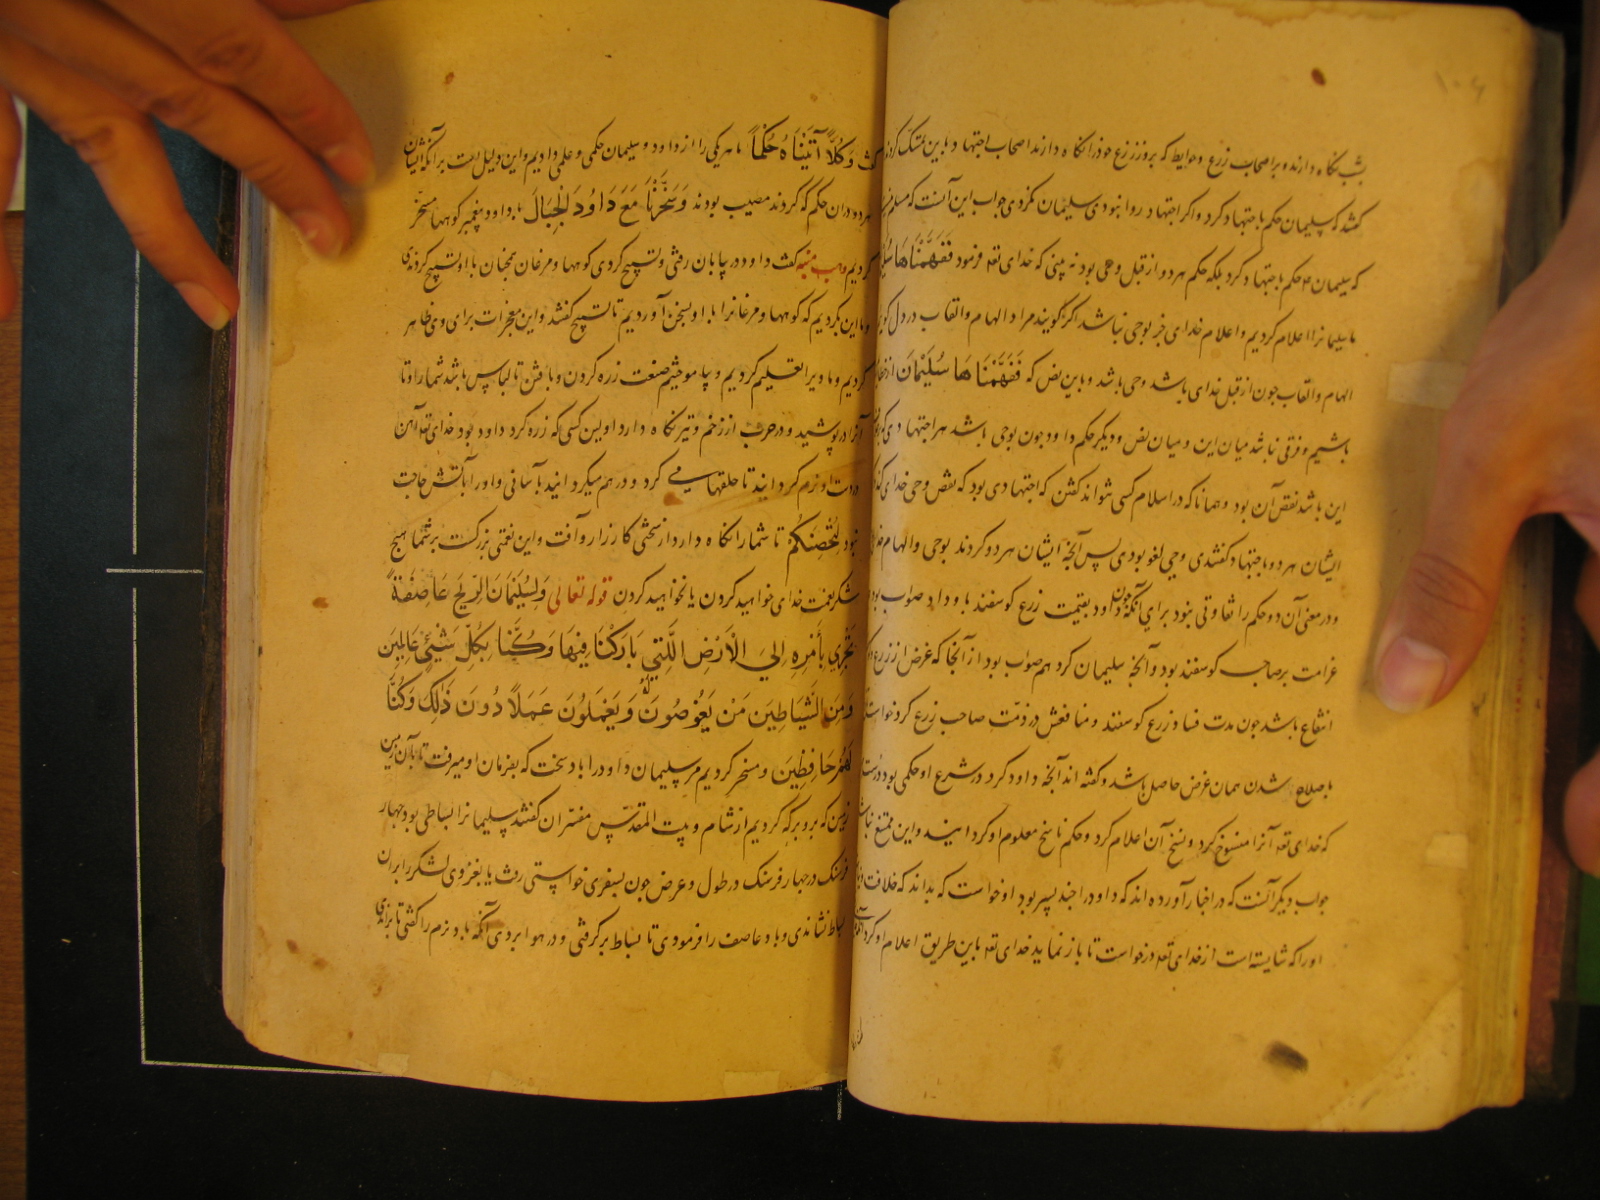 ۱۰۶
بشب نگاه دارند و بر اصحاب زرع و حوایط که بروز زرع خود را نگاه دارند اصحاب اجتهاد باین تمسک کردند
گفتند که سلیمان حکم باجتهاد کرد و اگر اجتهاد روا نبودی سلیمان نکردی جواب این آنست که مسلم نیست
که سلیمان ع حکم باجتهاد کرد بلکه حکم هر دو از قبل وحی بود نه بینی که خدای تعه فرمود فَفَهَّمْنَاهَا
ما سلیمانرا اعلام کردیم و اعلام خدای جز بوحی نباشد اگر گویند مراد الهام و القاب در دل
الهام و القاب چون از قبل خدای باشد وحی باشد و باین نص که فَفَهَّمْنَاهَا سُلَیْمَانَ
باشیم و فرقی نباشد میان این و میان نص و دیگر حکم داود چون بوحی باشد هر اجتهادی
این باشد نقص آن بود و همانا که در اسلام کسی نتواند گفتن که اجتهادی بود که نقص وحی خدای
ایشان هر دو باجتهاد گفتندی وحی لغو بودی پس آنچه ایشان هر دو کردند بوحی و الهام
و در معنی آن دو حکم را تفاوتی نبود برای آنکه داود بقیمت زرع گوسفند باو داد صواب بود
غرامت بر صاحب گوسفند بود و آنچه سلیمان کرد هم صواب بود از آنجا که غرض از زرع
انتفاع باشد چون مدت فساد زرع گوسفند و منافعش در ذمت صاحب زرع کرد خواست
باصلاح شدن همان غرض حاصل باشد و گفته اند آنچه داود کرد در شرع او حکمی بود درست
که خدای تعه آنرا منسوخ کرد و نسخ آن اعلام کرد و حکم ناسخ معلوم او گردانید و این ممتنع نباشد
جواب دیگر آنست که در اخبار آورده اند که داود را چند پسر بود او خواست که بداند که خلافت
او را که شایسته است از خدای تعه درخواست تا باز نماید خدای تعه باین طریق اعلام او کرد
وَکُلًّا آتَیْنَاهُ حُکْمًا ما هر یکی را از داود و سلیمان حکمی و علمی دادیم و این دلیل است برآنکه ایشان
هر دو در آن حکم که کردند مصیب بودند وَسَخَّرْنَا مَعَ دَاوُدَ الْجِبَالَ با داود پیغمبر کوهها مسخر
کردیم وهب منبه گفت داود در بیابان رفتی و تسبیح کردی کوهها و مرغان همچنان با او تسبیح کردندی
و ما این کردیم که کوهها و مرغانرا با او بسخن آوردیم تا تسبیح گفتند و این معجزات برای وی ظاهر
کردیم و ما ویرا تعلیم کردیم و بیاموختیم صنعت زره کردن و بافتن تا لباس باشد شما را و تا
آنرا درپوشید و در حرب از زخم و تیر نگاه دارد اولین کسی که زره کرد داود بود خدای تعه آهن
در دست او نرم گردانید تا حلقها می کرد و در هم میگردانید بآسانی و او را بآتش حاجت
نبود لِتُحْصِنَکُمْ تا شما را نگاه دارد از سختی کارزار و آفت و این نعمتی بزرگست بر شما هیچ
شکر نعمت خدای خواهید کردن یا نخواهید کردن قوله تعالی وَلِسُلَیْمَانَ الرِّیحَ عَاصِفَةً
تَجْرِی بِأَمْرِهِ إِلَی الْأَرْضِ الَّتِی بَارَکْنَا فِیهَا وَکُنَّا بِکُلِّ شَیْئٍ عَالِمِینَ
وَمِنَ الشَّیَاطِینَ مَنْ یَغُوصُونَ لَهُ وَیَعْمَلُونَ عَمَلًا دُونَ ذَلِکَ وَکُنَّا
لَهُمْ حَافِظِینَ و مسخر کردیم مر سلیمان داود را باد سخت که بفرمان او میرفت تا بآن زمین
زمین که برو برکه کردیم از شام و بیت المقدس مفسران گفتند سلیمانرا بساطی بود چهار
فرسنگ در چهار فرسنگ در طول و عرض چون بسفری خواستی رفت یا بغزوی لشکر را بران
بساط نشاندی و باد عاصف را فرمودی تا بساط برگرفتی و در هوا بردی آنگه باد نرم را گفتی تا براندی